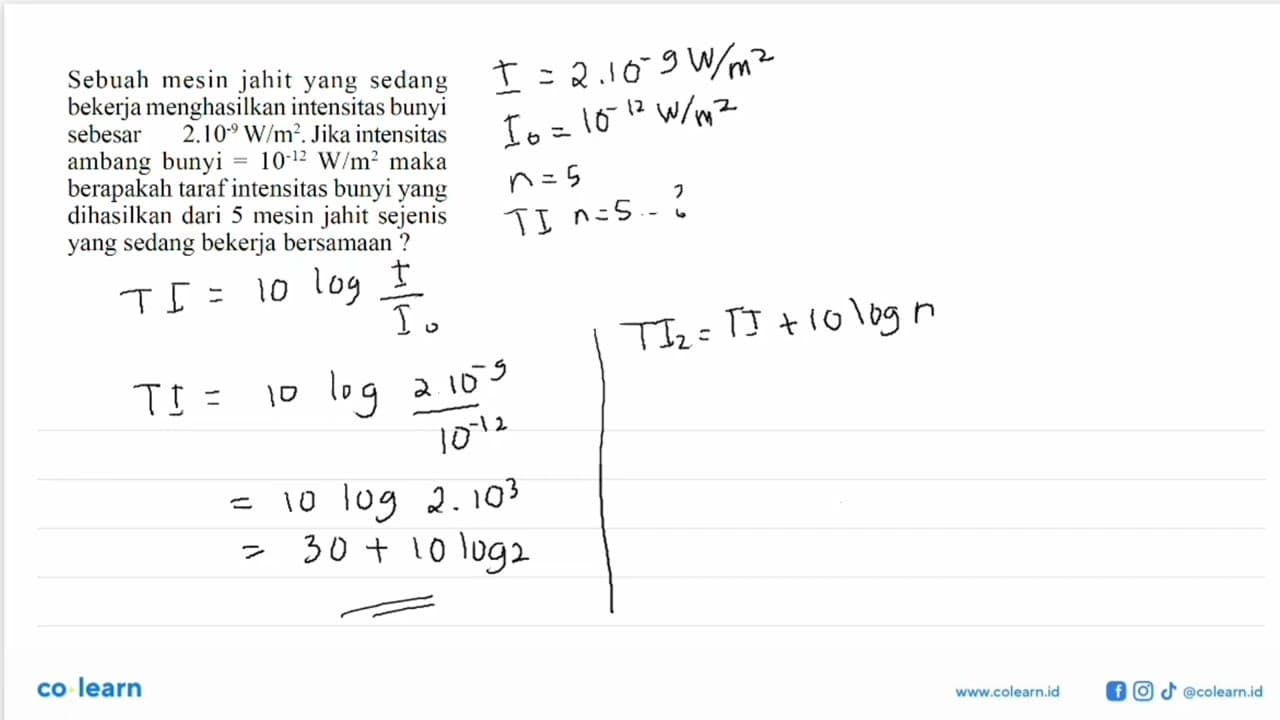 Sebuah mesin jahit yang sedang
bekerja menghasilkan intensitas bunyi
sebesar 2.10⁻⁹ W/m². Jika intensitas
ambang bunyi = 10⁻¹² W/m² maka
berapakah taraf intensitas bunyi yang
dihasilkan dari 5 mesin jahit sejenis
yang sedang bekerja bersamaan ?
I = 2.10⁻⁹ W/m²
I₀ = 10⁻¹² W/m²
n = 5
TI n=5 .. ?
TI = 10 log I/I₀
TI = 10 log 2.10⁻⁹/10⁻¹²
= 10 log 2.10³
= 30 + 10 log 2
TI₂ = TI + 10 log n
co learn
www.colearn.id
@colearn.id